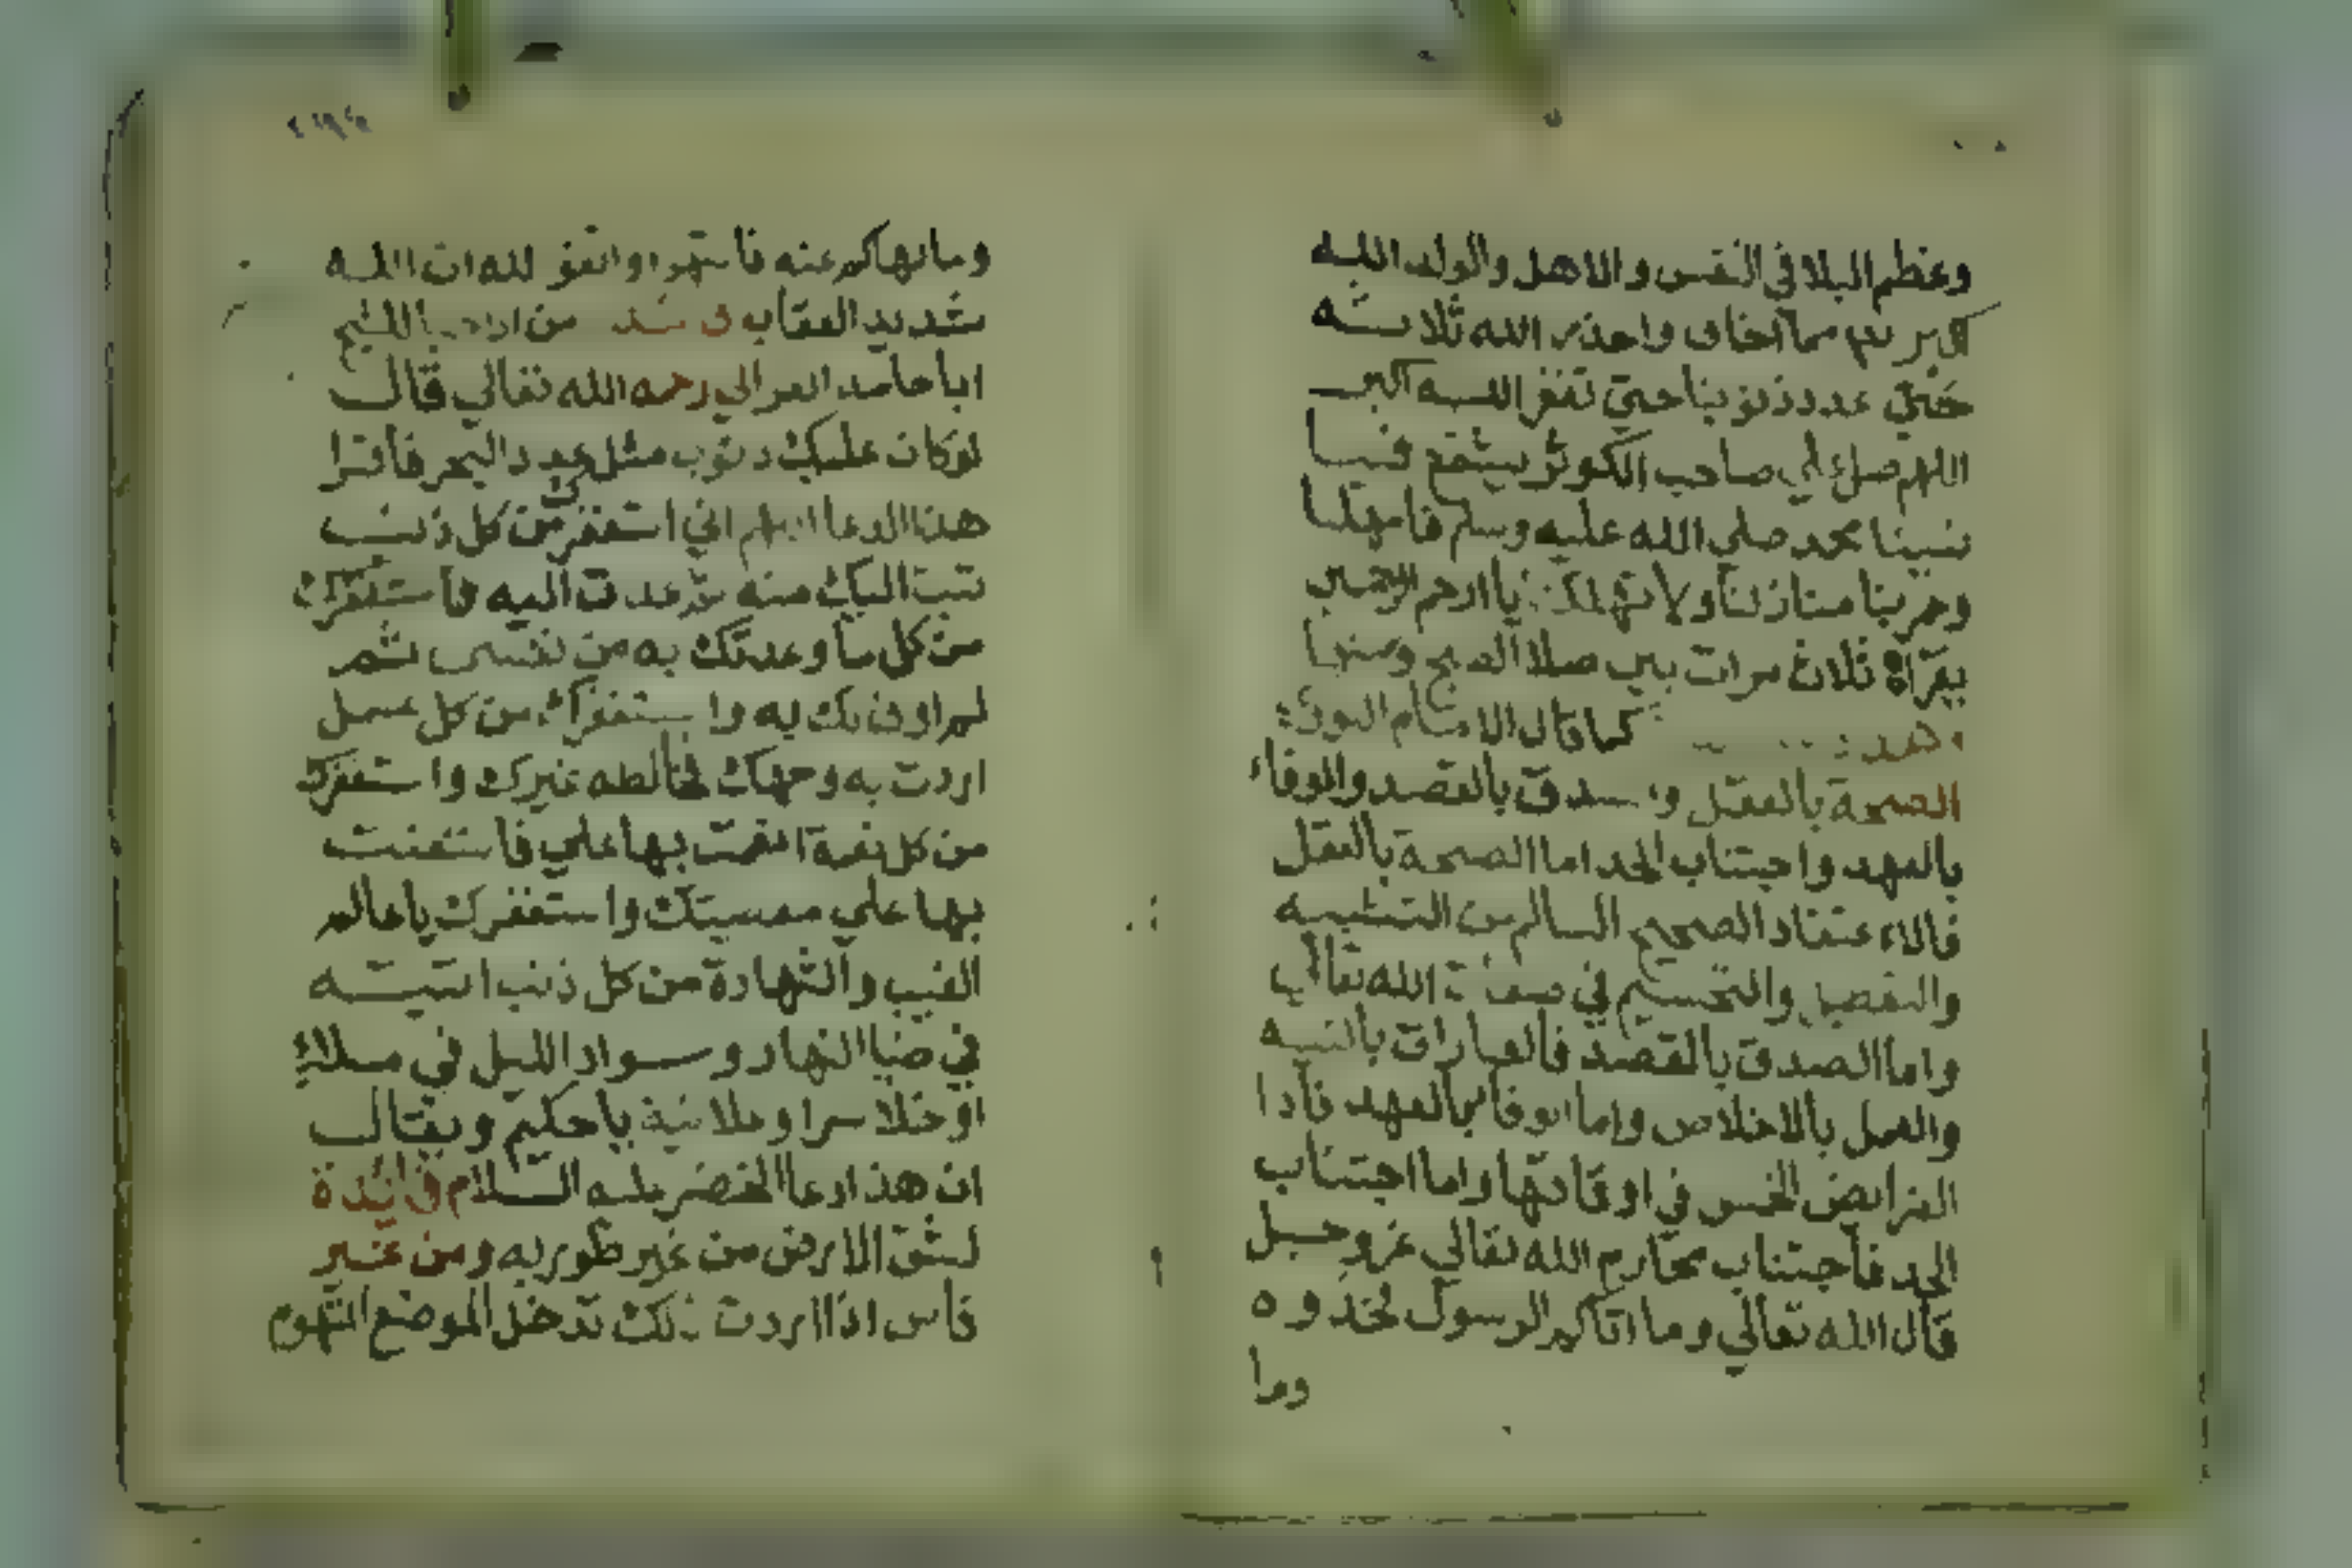 وعظم البلا في النفس والاهل والولد الله
اكبر مما اخاف واحذر الله ثلاثه
عدد ذنوبنا حتى تغفر الله اكبر
اللهم صل علي صاحب الكوثر
نبينا محمد صلي الله عليه وسلم فامهلنا
وخرب منازلنا ولا تهلكنا يا ارحم الراحمين
يقراه ثلاث مرات بين صلاة الصبح
كما قال الامام
الصحة بالعقل والصدق بالقصد والوفاء
بالعهد واجتناب الحد اما الصحة بالعقل
فالاعتقاد الصحيح السالم من التشبيه
والتجسيم في صفة الله تعالي
واما الصدق بالقصد فالعبارات بالنيه
والعمل بالاخلاص واما الوفا بالعهد فادا
الفرايض الخمس في اوقاتها واما اجتناب
الحد فاجتناب محارم الله تعالي عز وجل
قال الله تعالي وما اتاكم الرسول فخذوه
وما
وما نهاكم عنه فانتهوا واتقو لله ان الله
شديد العقاب من
ابا حامد الغزالي رحمه الله تعالي قال
لو كان عليك ذنوب مثل عدد البحر فاقرا
هذا الدعا اللهم اني استغفرك من كل ذنب
تبت اليك منه ثم عدت اليه واستغفرك
من كل ما وعدتك به من نفسي ثم
لم اوف لك به واستغفرك من كل عمل
اردت به وجهك فخالطه غيرك واستغفرك
من كل نعمة انعمت بها علي فاستعنت
بها علي معصيتك واستغفرك يا عالم
الغيب والشهادة من كل ذنب اتيته
في ضيا النهار وسواد الليل في ملاء
او خلا سرا وعلانية يا حكيم ويقال
ان هذا دعا الخضر عليه السلام فائدة
لشق الارض من غير طوريه ومن غير
فاس اذا اردت ذلك تدخل الموضع